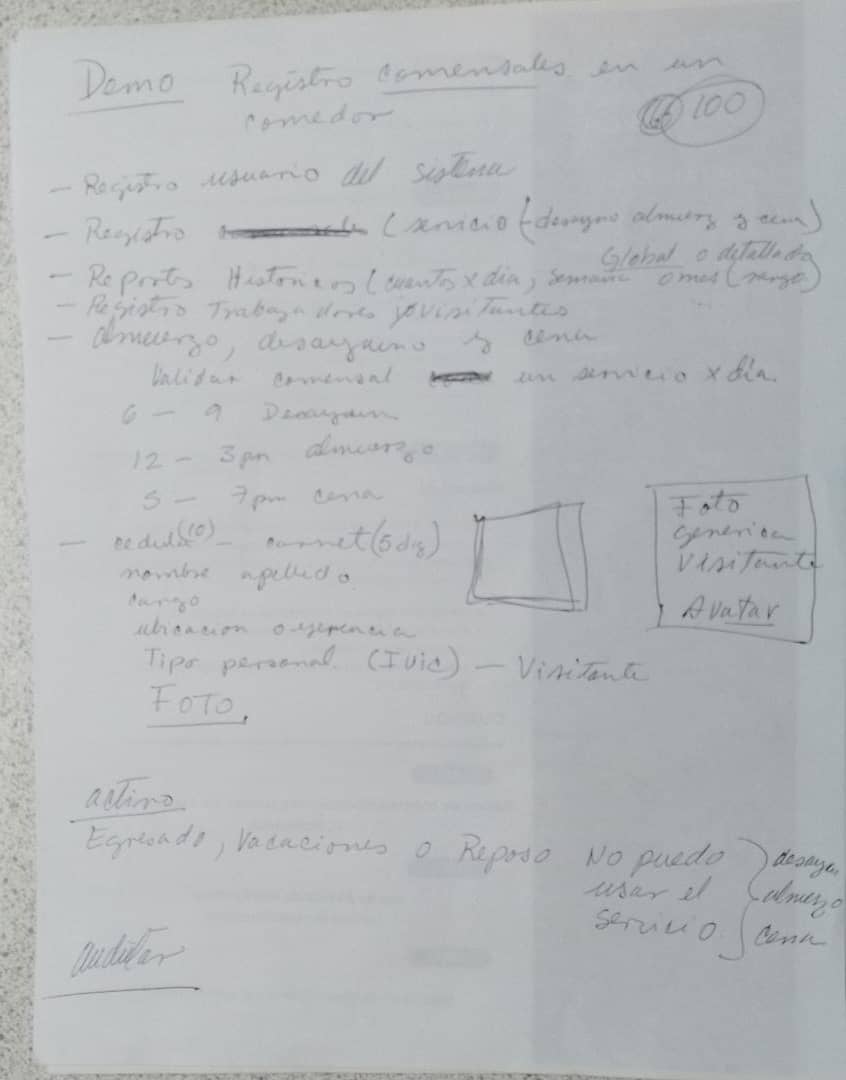 Demo Registro comensales en un
comedor
100
- Registro usuario del sistema
- Registro (servicio (desayuno almuerz y cena)
Global o detallado
- Reportes Historicos (cuantos x dia, semana o mes (rango)
- Registro Trabajadores y visitantes
- almuerzo, desayuno y cena
Validar comensal un servicio x dia
6 - 9 Desayuno
12 - 3pm almuerzo
5 - 7pm cena
- cedula (10) - carnet (5 dig)
nombre apellido
cargo
ubicacion o gerencia
Tipo personal (IVIC) - Visitante
FOTO
Foto
generica
Visitante
Avatar
activo
Egresado, Vacaciones o Reposo No puedo
usar el
servicio
desayu
almuerzo
cena
auditar